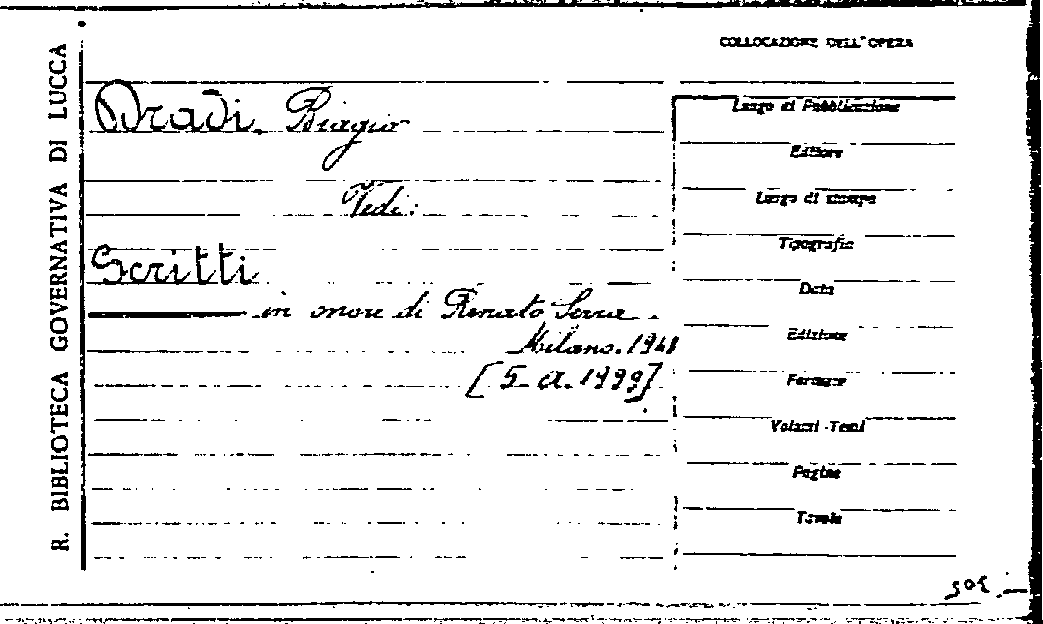 R. BIBLIOTECA GOVERNATIVA DI LUCCA
COLLOCAZIONE DELL'OPERA
Dradi. Biagio
Vedi:
Scritti
in onore di Renato Serra.
Milano. 1948
[5. a. 1999]
Luogo di Pubblicazione
Editore
Luogo di stampa
Tipografia
Data
Edizione
Formato
Volumi - Tomi
Pagine
Tavole